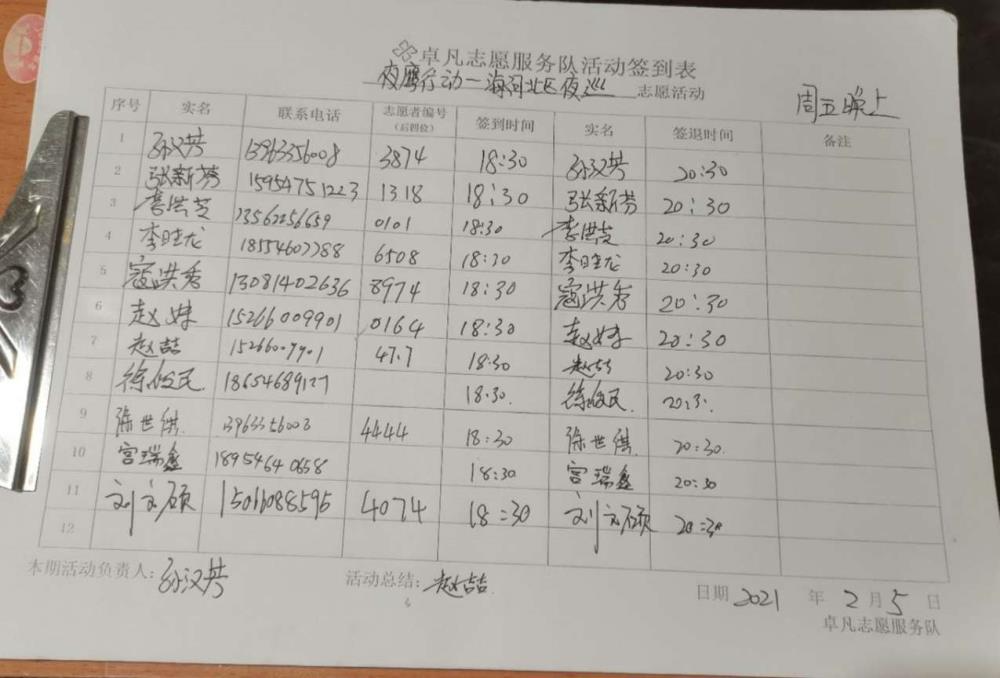 卓凡志愿服务队活动签到表
夜鹰行动一海河北区夜巡 志愿活动
周五晚上
序号 实名 联系电话 志愿者编号(后四位) 签到时间 实名 签退时间 备注
1 孙汉共 13963356008 3874 18:30 孙汉共 20:30
2 张新芬 15954751223 1318 18:30 张新芬 20:30
3 李洪芝 13562256659 0101 18:30 李洪芝 20:30
4 李旺龙 18554607788 6508 18:30 李旺龙 20:30
5 寇洪秀 13081402636 8974 18:30 寇洪秀 20:30
6 赵妹 15266009901 0164 18:30 赵妹 20:30
7 赵喆 18:30 赵喆 20:30
8 徐俊民 18654689127 18:30. 徐俊民 20:3.
9 徐世侠 4444 18:30 徐世侠 20:30.
10 宫瑞鑫 18954640658 18:30 宫瑞鑫 20:30
11 刘文硕 15016088595 4074 18:30 刘文硕 20:30
12
本期活动负责人:孙汉共 活动总结:赵喆. 日期 2021 年 2 月 5 日
卓凡志愿服务队